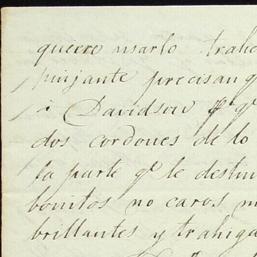 quiere usarlo trahe
pinjante precisam
á Davidson pª qª
dos cordones de lo
la parte qª le destin
bonitos no caros m
brillantes y trahiga